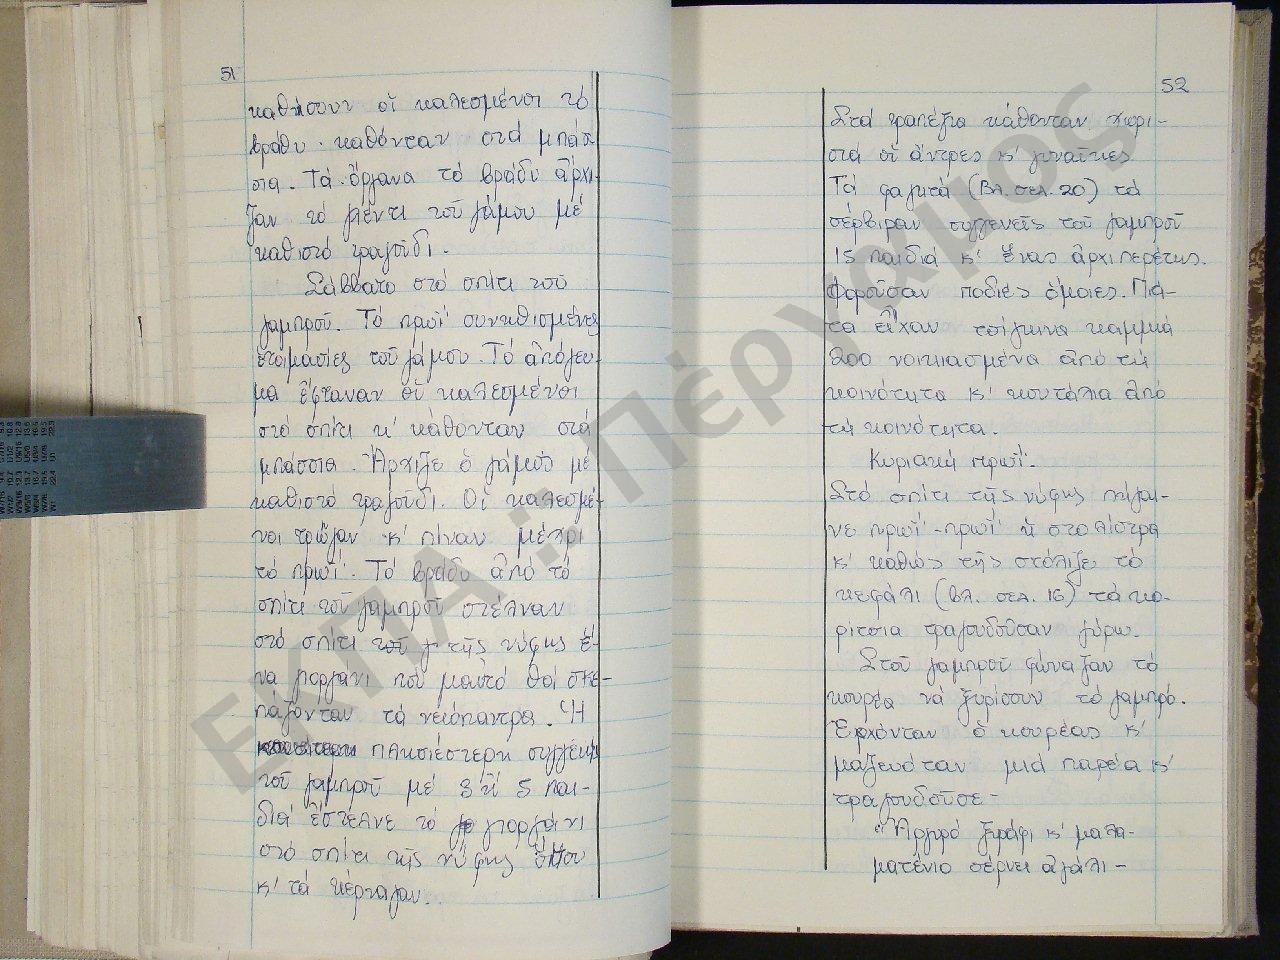 51
καθήσουν οἱ καλεσμένοι τό
βράδυ. καθόνταν στά μπάσ
σια. Τά ὄργανα τό βράδυ ἄρχι
ζαν τό γλέντι τοῦ γάμου μέ
καθιστό τραγούδι.
Σάββατο στό σπίτι τοῦ
γαμπροῦ. Τό πρωΐ συνηθισμένες
ἑτοιμασίες τοῦ γάμου. Τό ἀπόγευ-
μα ἔφταναν οἱ καλεσμένοι
στό σπίτι κ' κάθονταν στά
μπάσσια. Ἄρχιζε ὁ γάμος μέ
καθιστό τραγούδι. Οἱ καλεσμέ-
νοι τρῶγαν κ' πίναν μέχρι
τό πρωΐ. Τό βράδυ ἀπό τό
σπίτι τοῦ γαμπροῦ στέλναν
στό σπίτι τῆς νύφης ἕ-
να γιοργάνι πού μ'αὐτό θά σκε-
πάζονταν τά νειόπαντρα. Ἡ
πλησιέστερη συγγενής
τοῦ γαμπροῦ μέ 3 ἤ 5 παι-
διά ἔστελνε τό γιοργάνι
στό σπίτι τῆς νύφης ὅπου
κ' τά κέρναγαν.
52
Στά τραπέζια κάθονταν χωρι-
στά οἱ ἄντρες κ' γυναῖκες
Τά φαγητά (βλ. σελ. 20) τά
σέρβιραν συγγενεῖς τοῦ γαμπροῦ
15 παιδιά κ' ἕνας ἀρχιπερέτης.
Φοροῦσαν ποδιές ὅμοιες. Πιά-
τα εἶχαν τσίγκινα καμμιά
200 νοικιασμένα ἀπό τή
κοινότητα κ' κουτάλια ἀπό
τή κοινότητα.
Κυριακή πρωΐ.
Στό σπίτι τῆς νύφης πήγαι-
νε πρωΐ-πρωΐ ἡ στολίστρα
κ' καθώς τῆς στόλιζε τό
κεφάλι (βλ. σελ. 16) τά κο-
ρίτσια τραγουδοῦσαν γύρω.
Στοῦ γαμπροῦ φώναζαν τό
κουρέα νά ξυρίσουν τό γαμπρό.
Ἐρχόνταν ὁ κουρέας κ'
μαζευόταν μιά παρέα κ'
τραγουδοῦσε-
"Ἀργυρό ξυράφι κ' μαλα-
ματένιο σέρνει ἀγάλι-
ΕΚΠΑ :: Πέργαμος